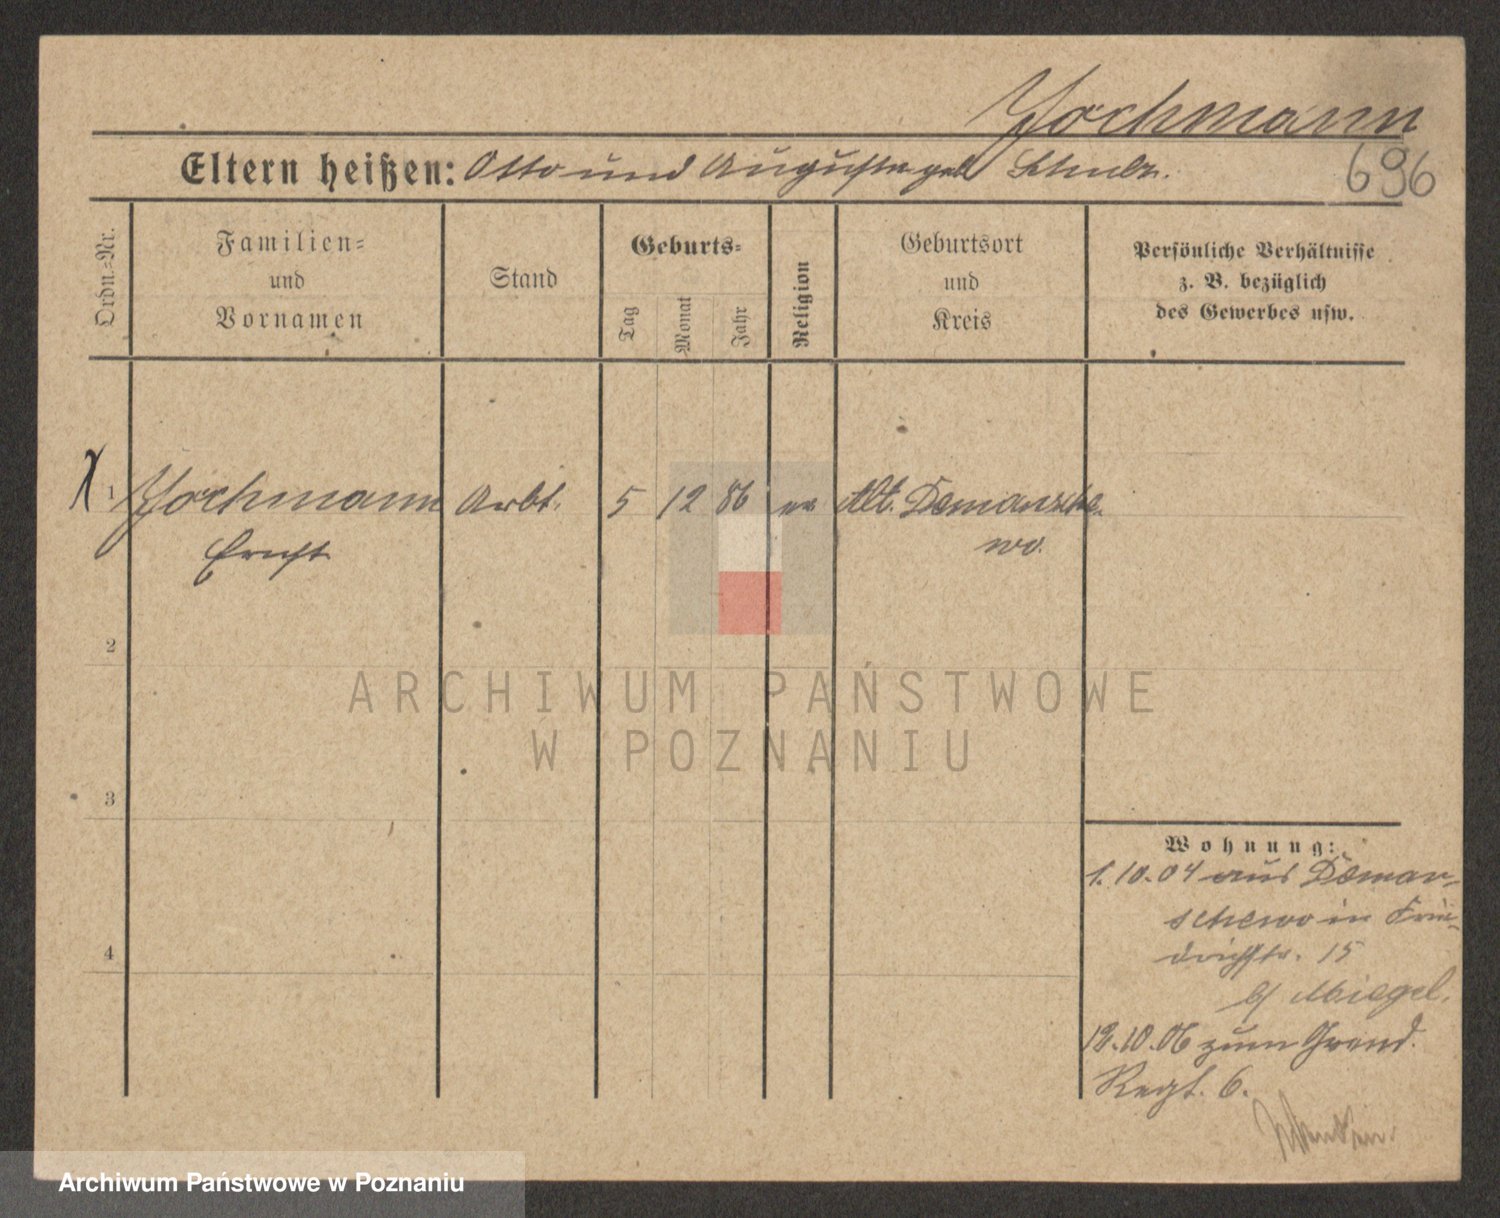 Jochmann
Eltern heißen: Otto und Auguste geb Schulz.
696
Ordn.=Nr.
Familien=
und
Vornamen
Stand
Geburts=
Tag
Monat
Jahr
Religion
Geburtsort
und
Kreis
Persönliche Verhältnisse
z. B. bezüglich
des Gewerbes usw.
1 Jochmann Arbt. 5 12 86 ev Alt. Demansche-
Ernst wo.
2
3
4
Wohnung:
1.10.04 aus Doman-
schewo in Frie-
drichstr. 15
b/ Miegel.
12.10.06 zum Grend.
Regt. 6.
ARCHIWUM PAŃSTWOWE
W POZNANIU
Archiwum Państwowe w Poznaniu